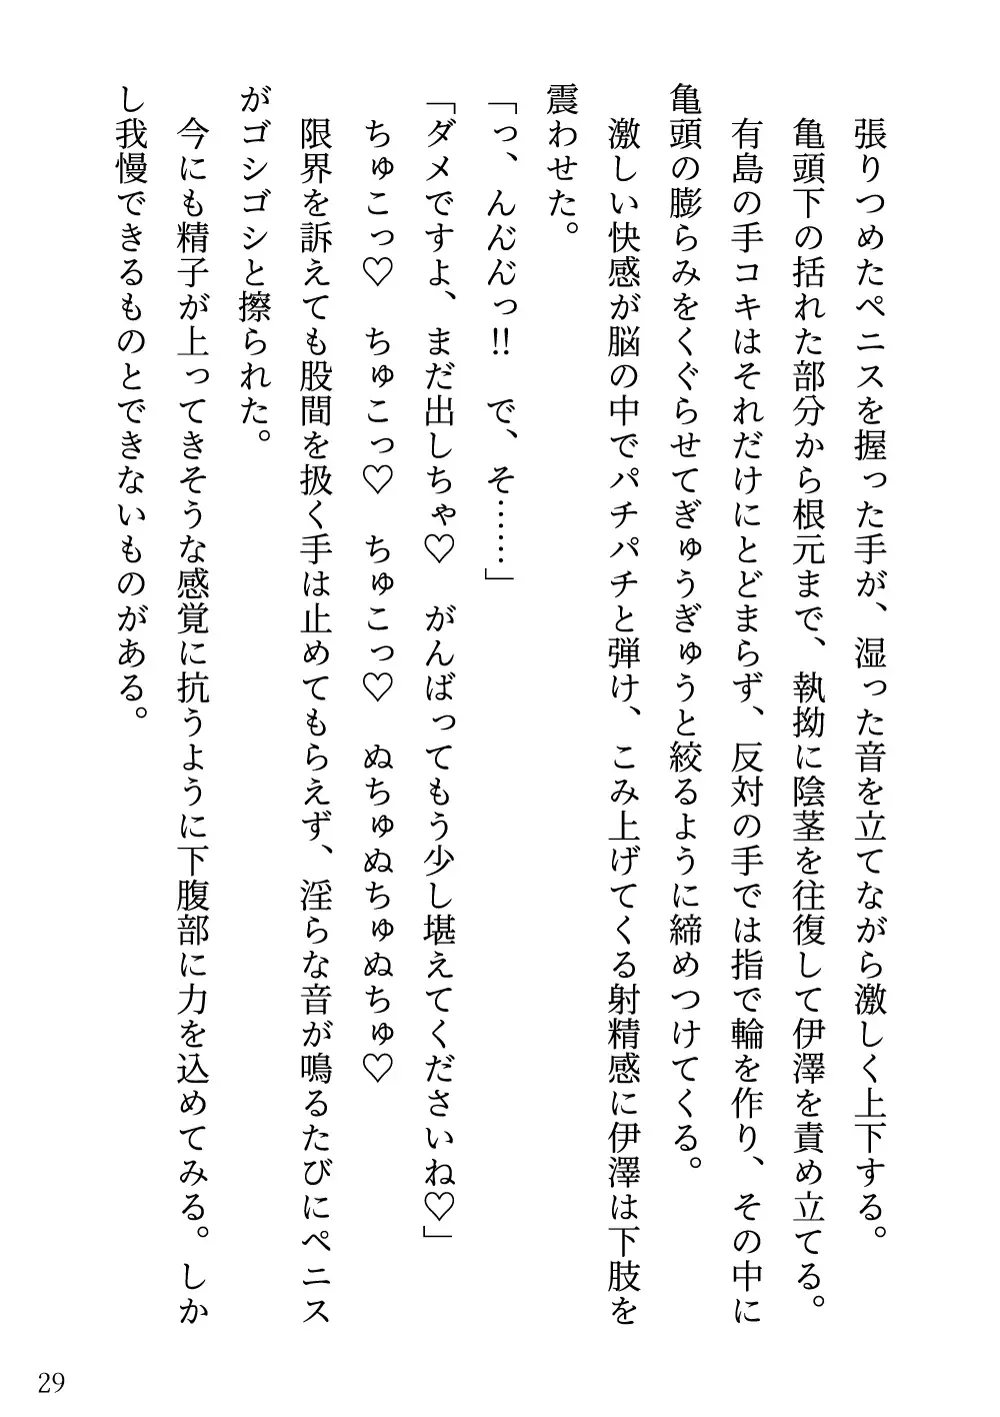 張りつめたペニスを握った手が、湿った音を立てながら激しく上下する。
亀頭下の括れた部分から根元まで、執拗に陰茎を往復して伊澤を責め立てる。
有島の手コキはそれだけにとどまらず、反対の手では指で輪を作り、その中に
亀頭の膨らみをくぐらせてぎゅうぎゅうと絞るように締めつけてくる。
激しい快感が脳の中でパチパチと弾け、こみ上げてくる射精感に伊澤は下肢を
震わせた。
「っ、ん゛ん゛っ!!　で、そ……」
「ダメですよ、まだ出しちゃ♡　がんばってもう少し堪えてくださいね♡」
ちゅこっ♡　ちゅこっ♡　ちゅこっ♡　ぬちゅぬちゅぬちゅ♡
限界を訴えても股間を扱く手は止めてもらえず、淫らな音が鳴るたびにペニス
がゴシゴシと擦られた。
今にも精子が上ってきそうな感覚に抗うように下腹部に力を込めてみる。しか
し我慢できるものとできないものがある。
29